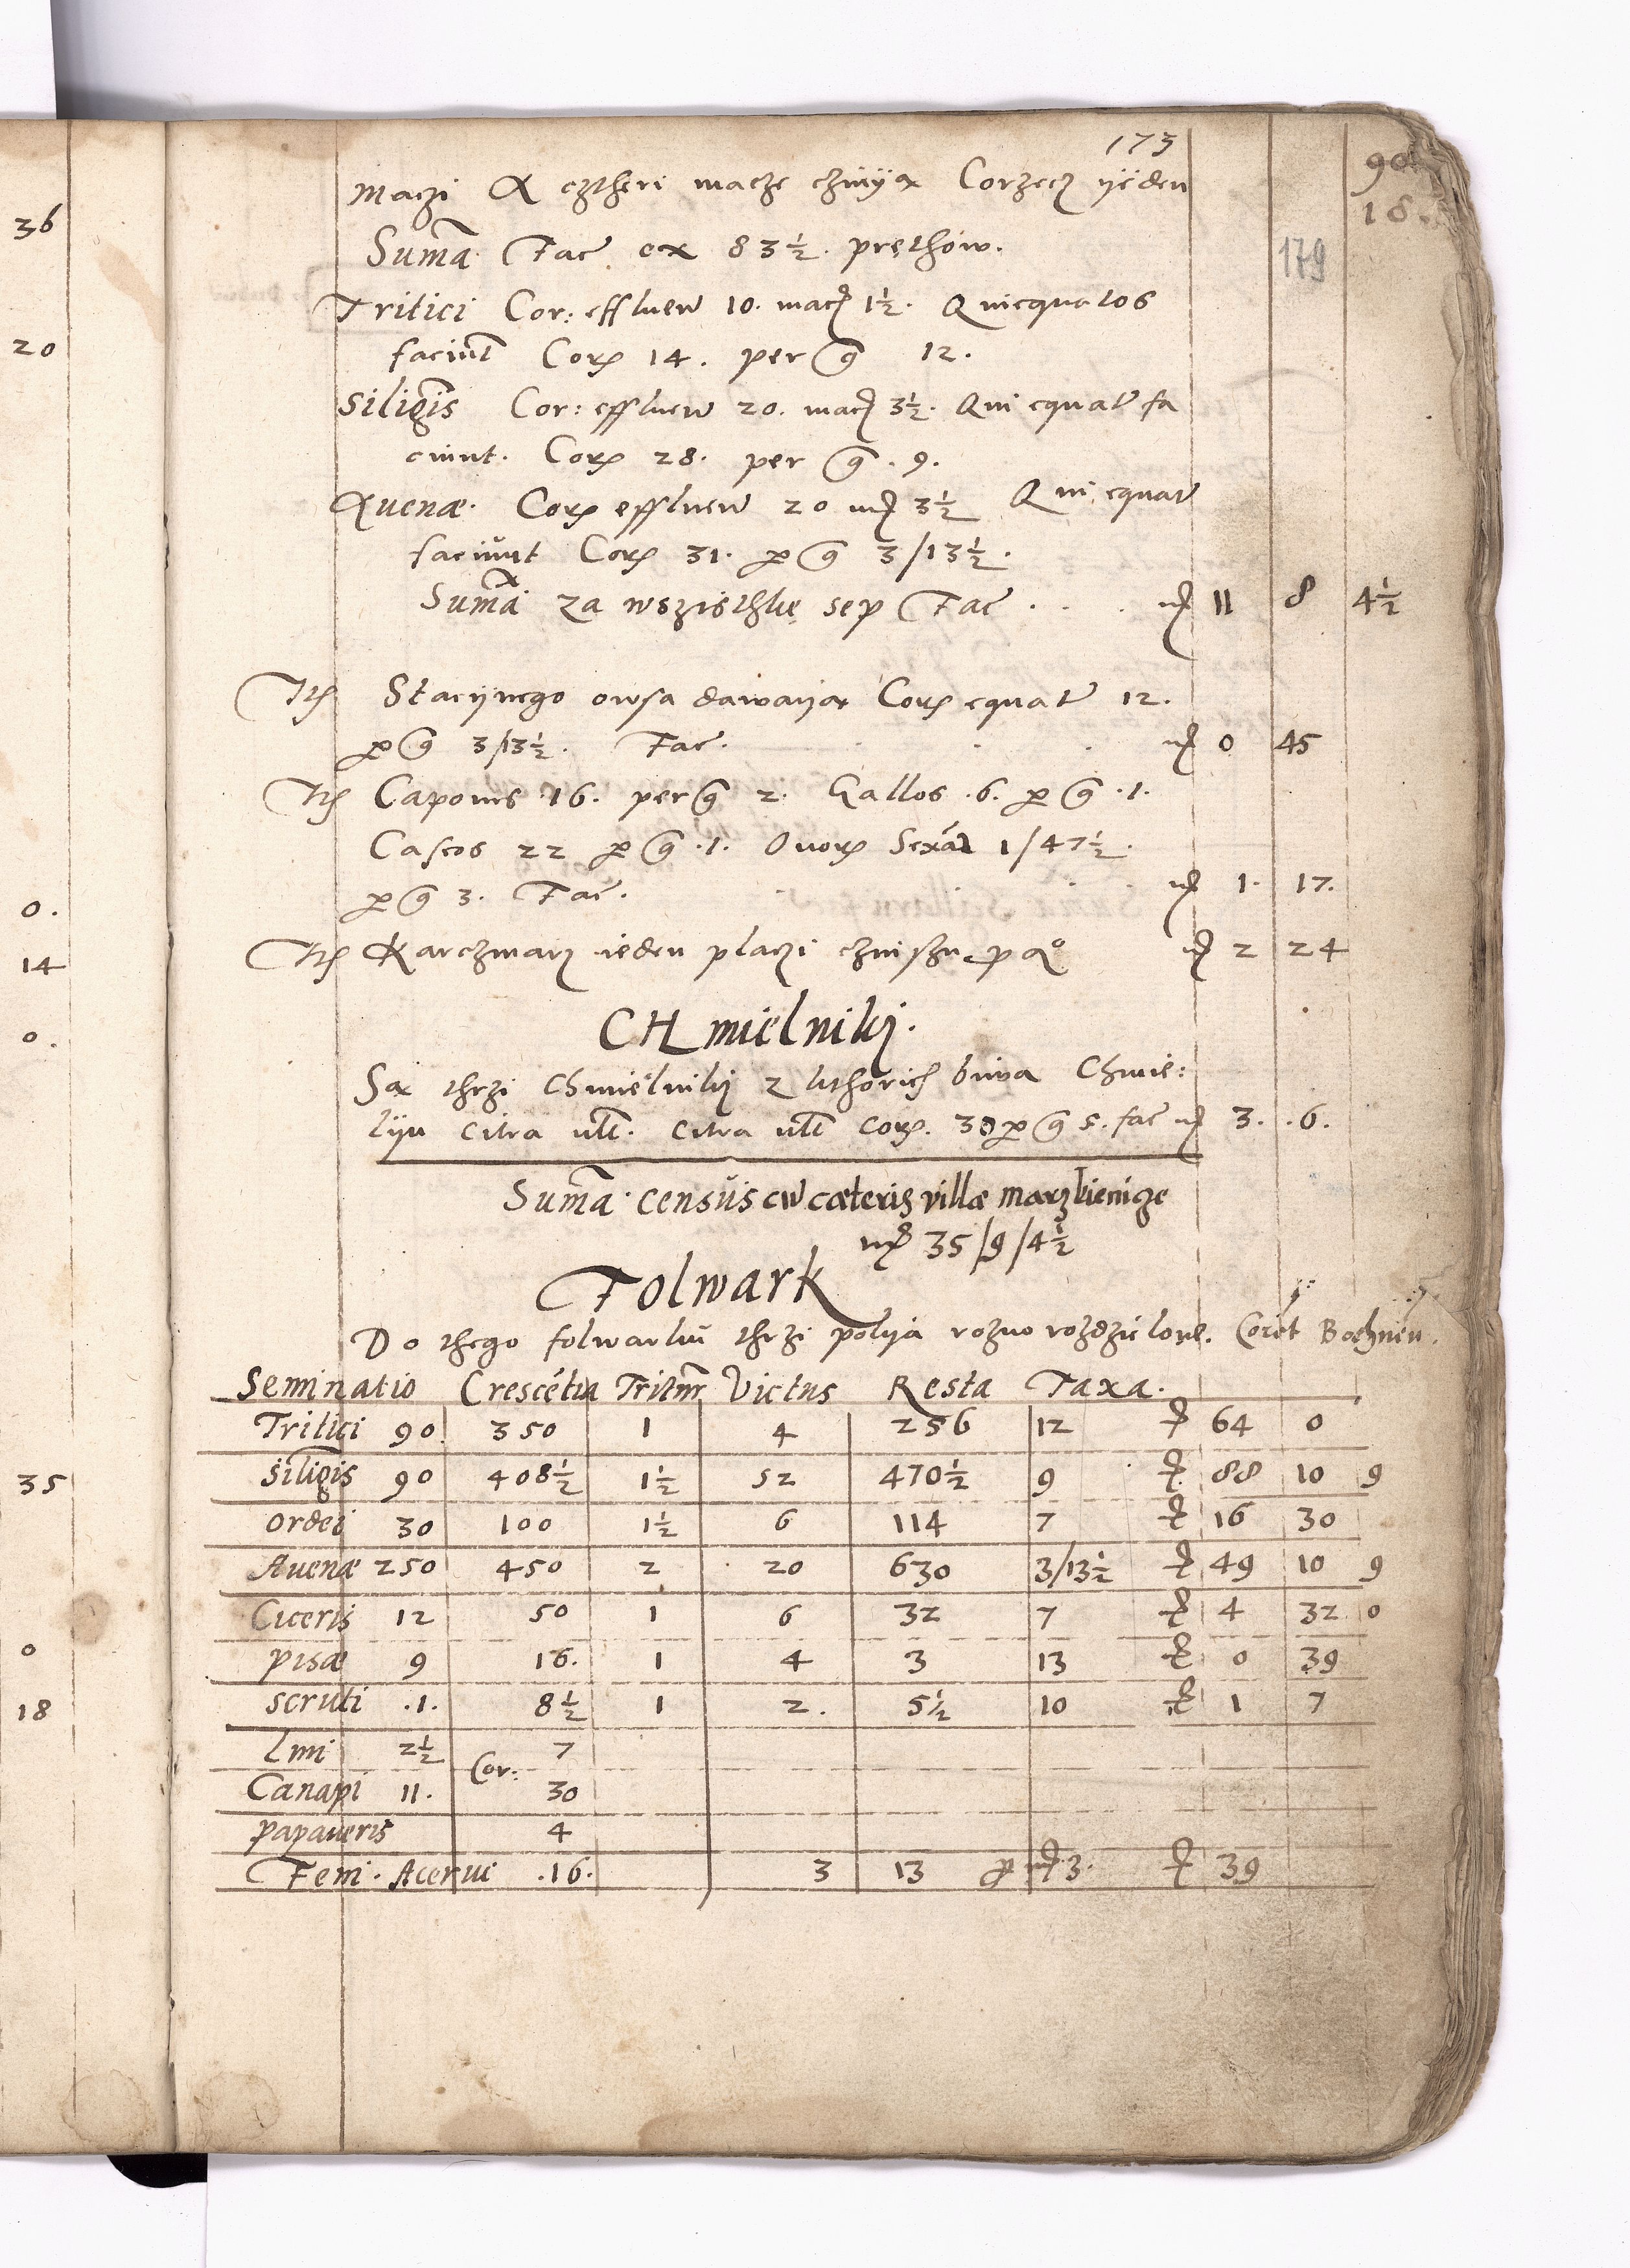 173
90
18.
179
maczi A cztheri macze czinyą Corzecz yeden
Suma Fac. ex 83 1/2. pręthow.
Tritici Cor: effluen 10. mac 1 1/2. Qui equatos
faciunt Cor 14. per g 12.
Siliginis Cor: effluen 20. mac 3 1/2. Qui equat fa
ciunt. Cor 28. per g. 9.
Auenæ. Cor effluen 20 m 3 1/2 Qui equat
faciunt Cor 31. p g 3/13 1/2.
Suma za wszisthke sep Fac . . . m 11 8 4 1/2
It Stacijnego owsa dawayą Cor equat 12.
p g 3/13 1/2. Fac. m 0 45
It Capones .16. per g 2. Gallos .6. p g .1.
Caseos 22 p g .1. Ouor Sexa 1/47 1/2.
p g 3. Fac. m 1. 17.
It Karczmarz ieden placzi czinszu p Ao m 2 24
CHmielniki.
Są thrzi Chmielniki z kthorich biwa Chmie:
lyu citra vlt. citra vlt cor. 30 p g 5. fac m 3. .6.
Suma census cu cæteris villæ marzkienicze
m 35/9/4 1/2
Folwark
Do thego folwarku thrzi polya rozno rozdzielone. Coret Bochnen.
Seminatio Crescetia Tritur Victus Resta Taxa.
Tritici 90 350 1 4 256 12 f 64 0
siliginis 90 408 1/2 1 1/2 52 470 1/2 9 f 88 10 9
ordei 30 100 1 1/2 6 114 7 f 16 30
Auenæ 250 450 2 20 630 3/13 1/2 f 49 10 9
Ciceris 12 50 1 6 32 7 f 4 32 0
pisæ 9 16. 1 4 3 13 f 0 39
scruti .1. 8 1/2 1 2. 5 1/2 10 f 1 7
Lini 2 1/2 Cor: 7
Canapi 11. 30
papaueris 4
Feni. Acerui .16. 3 13 p m 3. f 39
36
20
0.
14
0.
35
0
18